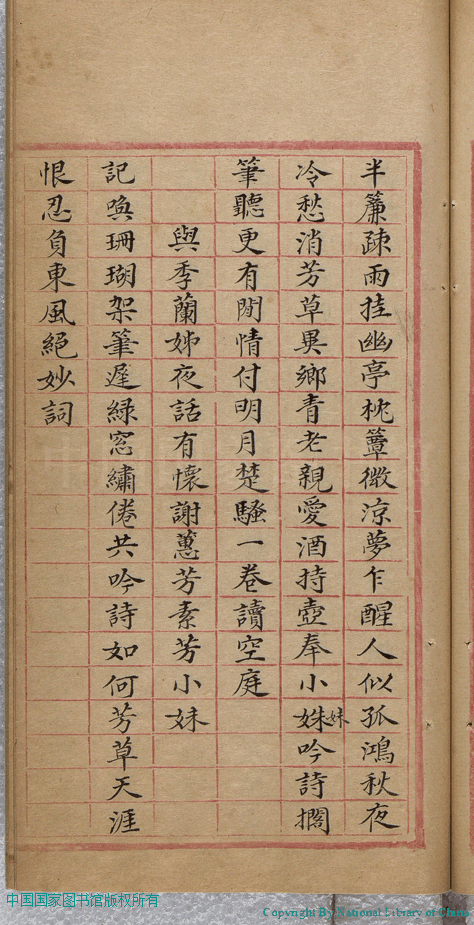 半簾疎雨挂幽亭枕簟微涼夢乍醒人似孤鴻秋夜
冷愁消芳草異鄉青老親愛酒持壺奉小姝妹吟詩擱
筆聽更有閒情付明月楚騷一卷讀空庭
與季蘭姊夜話有懷謝蕙芳素芳小妹
記喚珊瑚架筆遲緑窓繡倦共吟詩如何芳草天涯
恨忍負東風絕妙詞
中国国家图书馆版权所有
Copyright By National Library of China